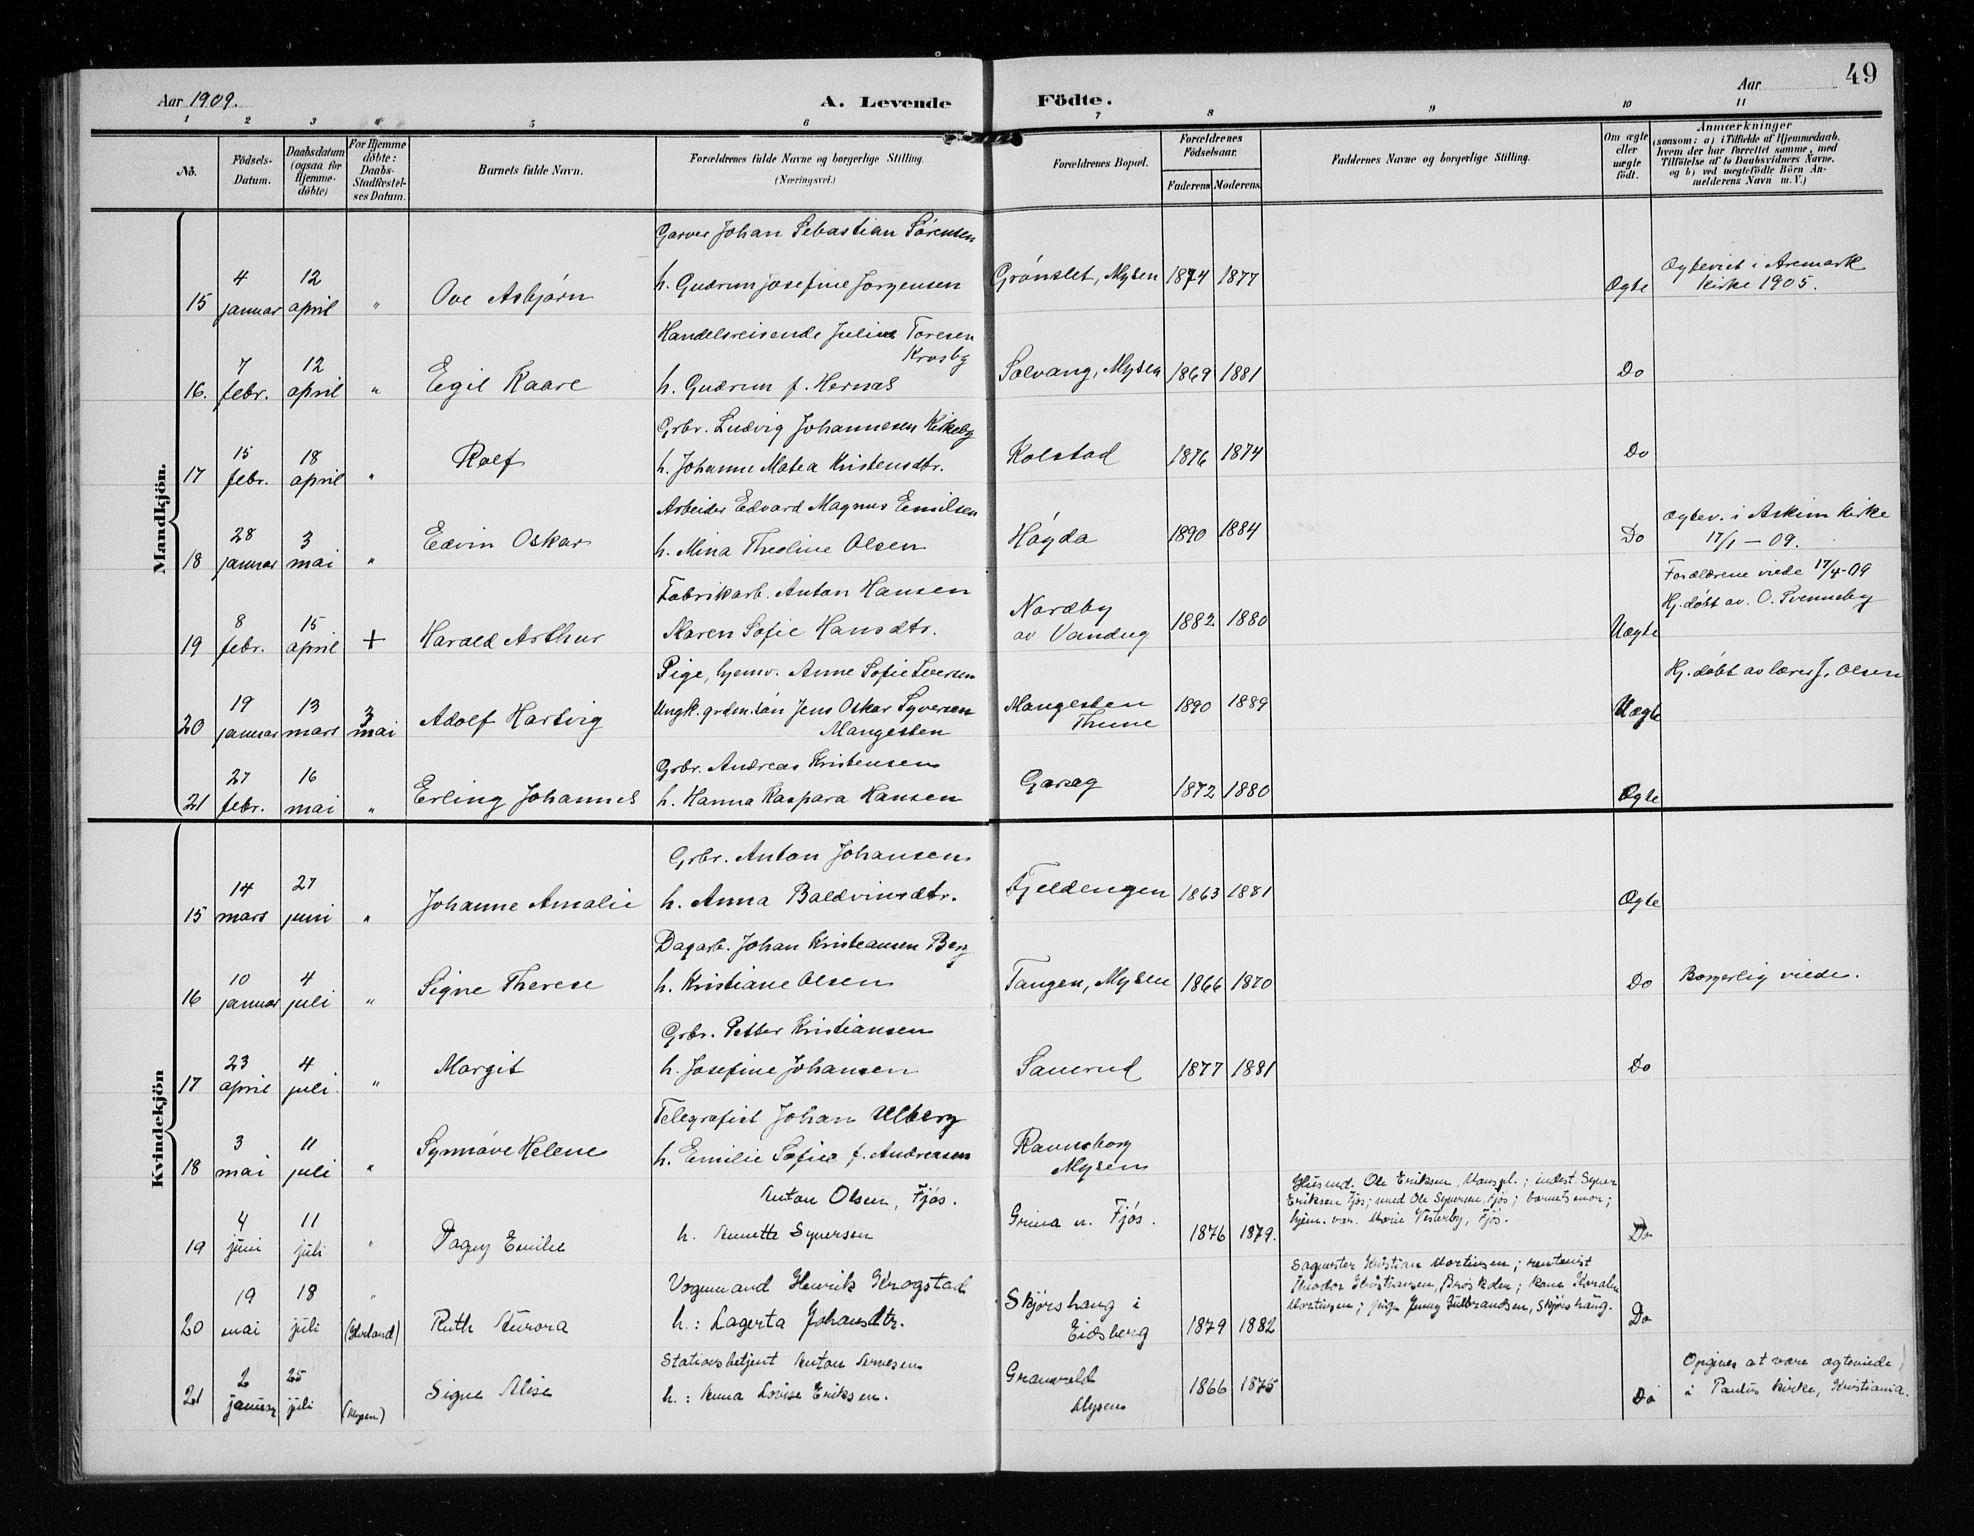 49
Aar 1909. A. Levende Födte. Aar
1 2 3 4 5 6 7 8 9 10 11
No.
Födsels-Datum.
Daabsdatum (ogsaa for Hjemme-döbte)
For Hjemme döbte: Daabs-Stadfæstel-ses Datum.
Barnets fulde Navn.
Forældrenes fulde Navne og borgerlige Stilling. (Næringsvei.)
Forældrenes Bopæl.
Forældrenes Födselsaar. Faderens Moderens
Faddernes Navne og borgerlige Stilling.
Om ægte eller uægte födt.
Anmærkninger (saasom: a) i Tilfælde af Hjemmedaab, hvem der har forrettet samme, med Tilföielse af to Daabsvidners Navne. og b) ved uægtefödte Börn An-melderens Navn m. V.)
Mandkjön.
Garver Johan Sebastian Sörensen
15 4 januar 12 april " Ove Asbjørn h. Gudrun Josefine Jørgensen Grønslet, Mysen 1874 1877 Ægte Ægteviet i Aremark Kirke 1905.
Handelsreisende Julius Toresen Krosby
16. 7 febr. 12 april " Egil Kaare h. Gudrun f. Hernæs Solvang, Mysen 1869 1881 Do
Grbr. Ludvig Johannesen Kirkeby
17 15 febr. 18 april " Rolf h. Johanne Matea Kristensdtr. Kolstad 1876 1874 Do
Arbeider Edvard Magnus Emilsen
18 28 januar 3 mai " Edvin Oskar h. Mina Theoline Olsen Høgda 1890 1884 Do Ægtev. i Askim Kirke 17/1 – 09.
Fabrikarb. Anton Hansen
Forældrene viede 17/4-09
19 8 febr. 15 april + Harald Arthur Karen Sofie Hansdtr. Nordby av 1882 1880 Uægte Hj. døbt av. O. Svenneby
Pige, hjemv. Anne Sofie Iversen
20 19 januar 13 mars 3 mai Adolf Hartvig Ungk. grdm.søn Jens Oskar Syversen Mangesten Mangesten Thune 1890 1889 Uægte Hj. døbt av lærer J. Olsen
Grbr. Andreas Kristensen
21 27 febr. 16 mai " Erling Johannes h. Hanna Kaspara Hansen Garseg 1872 1880 Ægte
Kvindekjön
Grbr. Anton Johansen
15 14 mars 27 juni " Johanne Amalie h. Anna Baldvinsdtr. Fjeldengen 1863 1881 Ægte
Dagarb. Johan Kristiansen Berg
16 10 januar 4 juli " Signe Therese h. Kristiane Olsen Tangen, Mysen 1866 1870 Do Borgerlig viede.
Grbr. Petter Kristiansen
17 23 april 4 juli. " Margit h. Josefine Johansen Saverud 1877 1881 Do
Telegrafist Johan Ulberg
18 3 mai 11 juli " Synnøve Helene h. Emilie Sofie f. Andreasen Ravnsborg Mysen
Anton Olsen, Fjøs.
19 4 juni 11 juli " Dagny Emilie h. Annette Syversen Grina u. Fjøs. 1876 1879. Husmd. Ole Eriksen, ; indst. Syver Eriksen Fjøs; umd Ole Syversen, Fjøs; barnets mor; hjem. vær. Marie Vesterby, Fjøs. Do
Vognmand Henrik Krogstad
20 19 mai 18 juli (Hærland) Ruth Aurora h.: Lagerta Johansdtr. Skjørshaug i Eidsberg 1879 1882 Sagmester Kristian Martinsen; rentenist Teodor Kristiansen, ; kone Karoline Martinsen; pige Jenny Gulbrandsen, Skjørshaug. Do
Stationsbetjent Anton Arnesen
21 2 januar 25 juli (Mysen) Signe Alise h.: Anna Lovise Eriksen. Granvold Mysen 1866 1875 Do Opgives at være ægteviede i Paulus kirke, Kristiania.